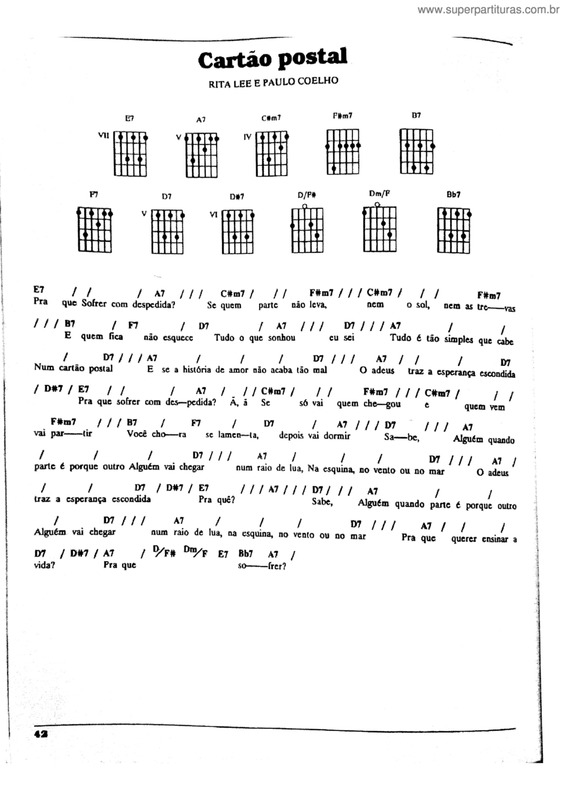 www.superpartituras.com.br
Cartão postal
RITA LEE E PAULO COELHO
E7 A7 C#m7 F#m7 B7
VII V IV
F7 D7 D#7 D/F# Dm/F Bb7
V VI
E7 / / / A7 / / / C#m7 / / / F#m7 / / / C#m7 / / / F#m7
Pra que Sofrer com despedida? Se quem parte não leva, nem o sol, nem as tre—vas
/ / / B7 / F7 / D7 / A7 / / / D7 / / / A7 / /
E quem fica não esquece Tudo o que sonhou eu sei Tudo é tão simples que cabe
/ D7 / / / A7 / / / D7 / / / A7 / / / D7
Num cartão postal E se a história de amor não acaba tão mal O adeus traz a esperança escondida
/ D#7 / E7 / / / A7 / / / C#m7 / / / F#m7 / / / C#m7 / / /
Pra que sofrer com des—pedida? Â, â Se só vai quem che—gou e quem vem
F#m7 / / / B7 / F7 / D7 / A7 / / / D7 / / / A7
vai par—tir Você cho—ra se lamen—ta, depois vai dormir Sa—be, Alguém quando
/ / / D7 / / / A7 / / / D7 / / / A7 /
parte é porque outro Alguém vai chegar num raio de lua, Na esquina, no vento ou no mar O adeus
/ / D7 / D#7 / E7 / / / A7 / / / D7 / / / A7 / /
traz a esperança escondida Pra quê? Sabe, Alguém quando parte é porque outro
/ D7 / / / A7 / / / D7 / / / A7 / / /
Alguém vai chegar num raio de lua, na esquina, no vento ou no mar Pra que querer ensinar a
D7 / D#7 / A7 / D/F# Dm/F E7 Bb7 A7 /
vida? Pra que so—frer?
42